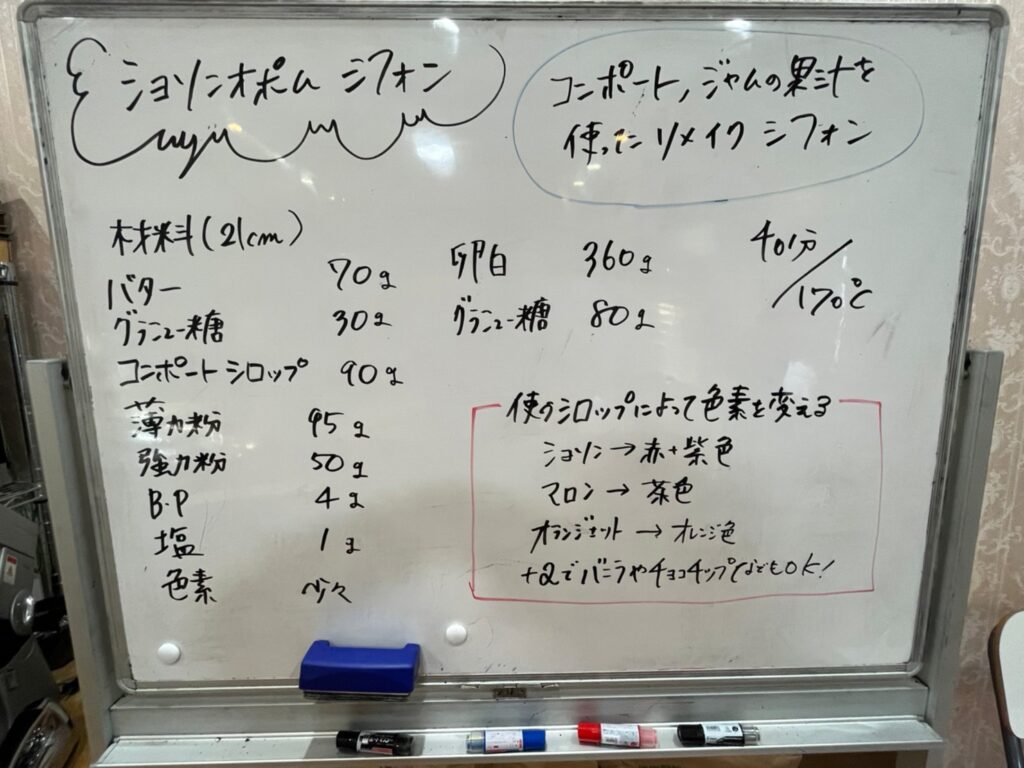 ショソンオポム シフォン
コンポート, ジャムの果汁を
使った リメイク シフォン
材料(21cm)
バター 70g
グラニュー糖 30g
コンポートシロップ 90g
薄力粉 95g
強力粉 50g
B.P 4g
塩 1g
色素 少々
卵白 360g
グラニュー糖 80g
40分/170℃
使うシロップによって色素を変える
ショソン→赤+紫色
マロン→茶色
オランジェット→オレンジ色
+αでバニラやチョコチップなどもOK!